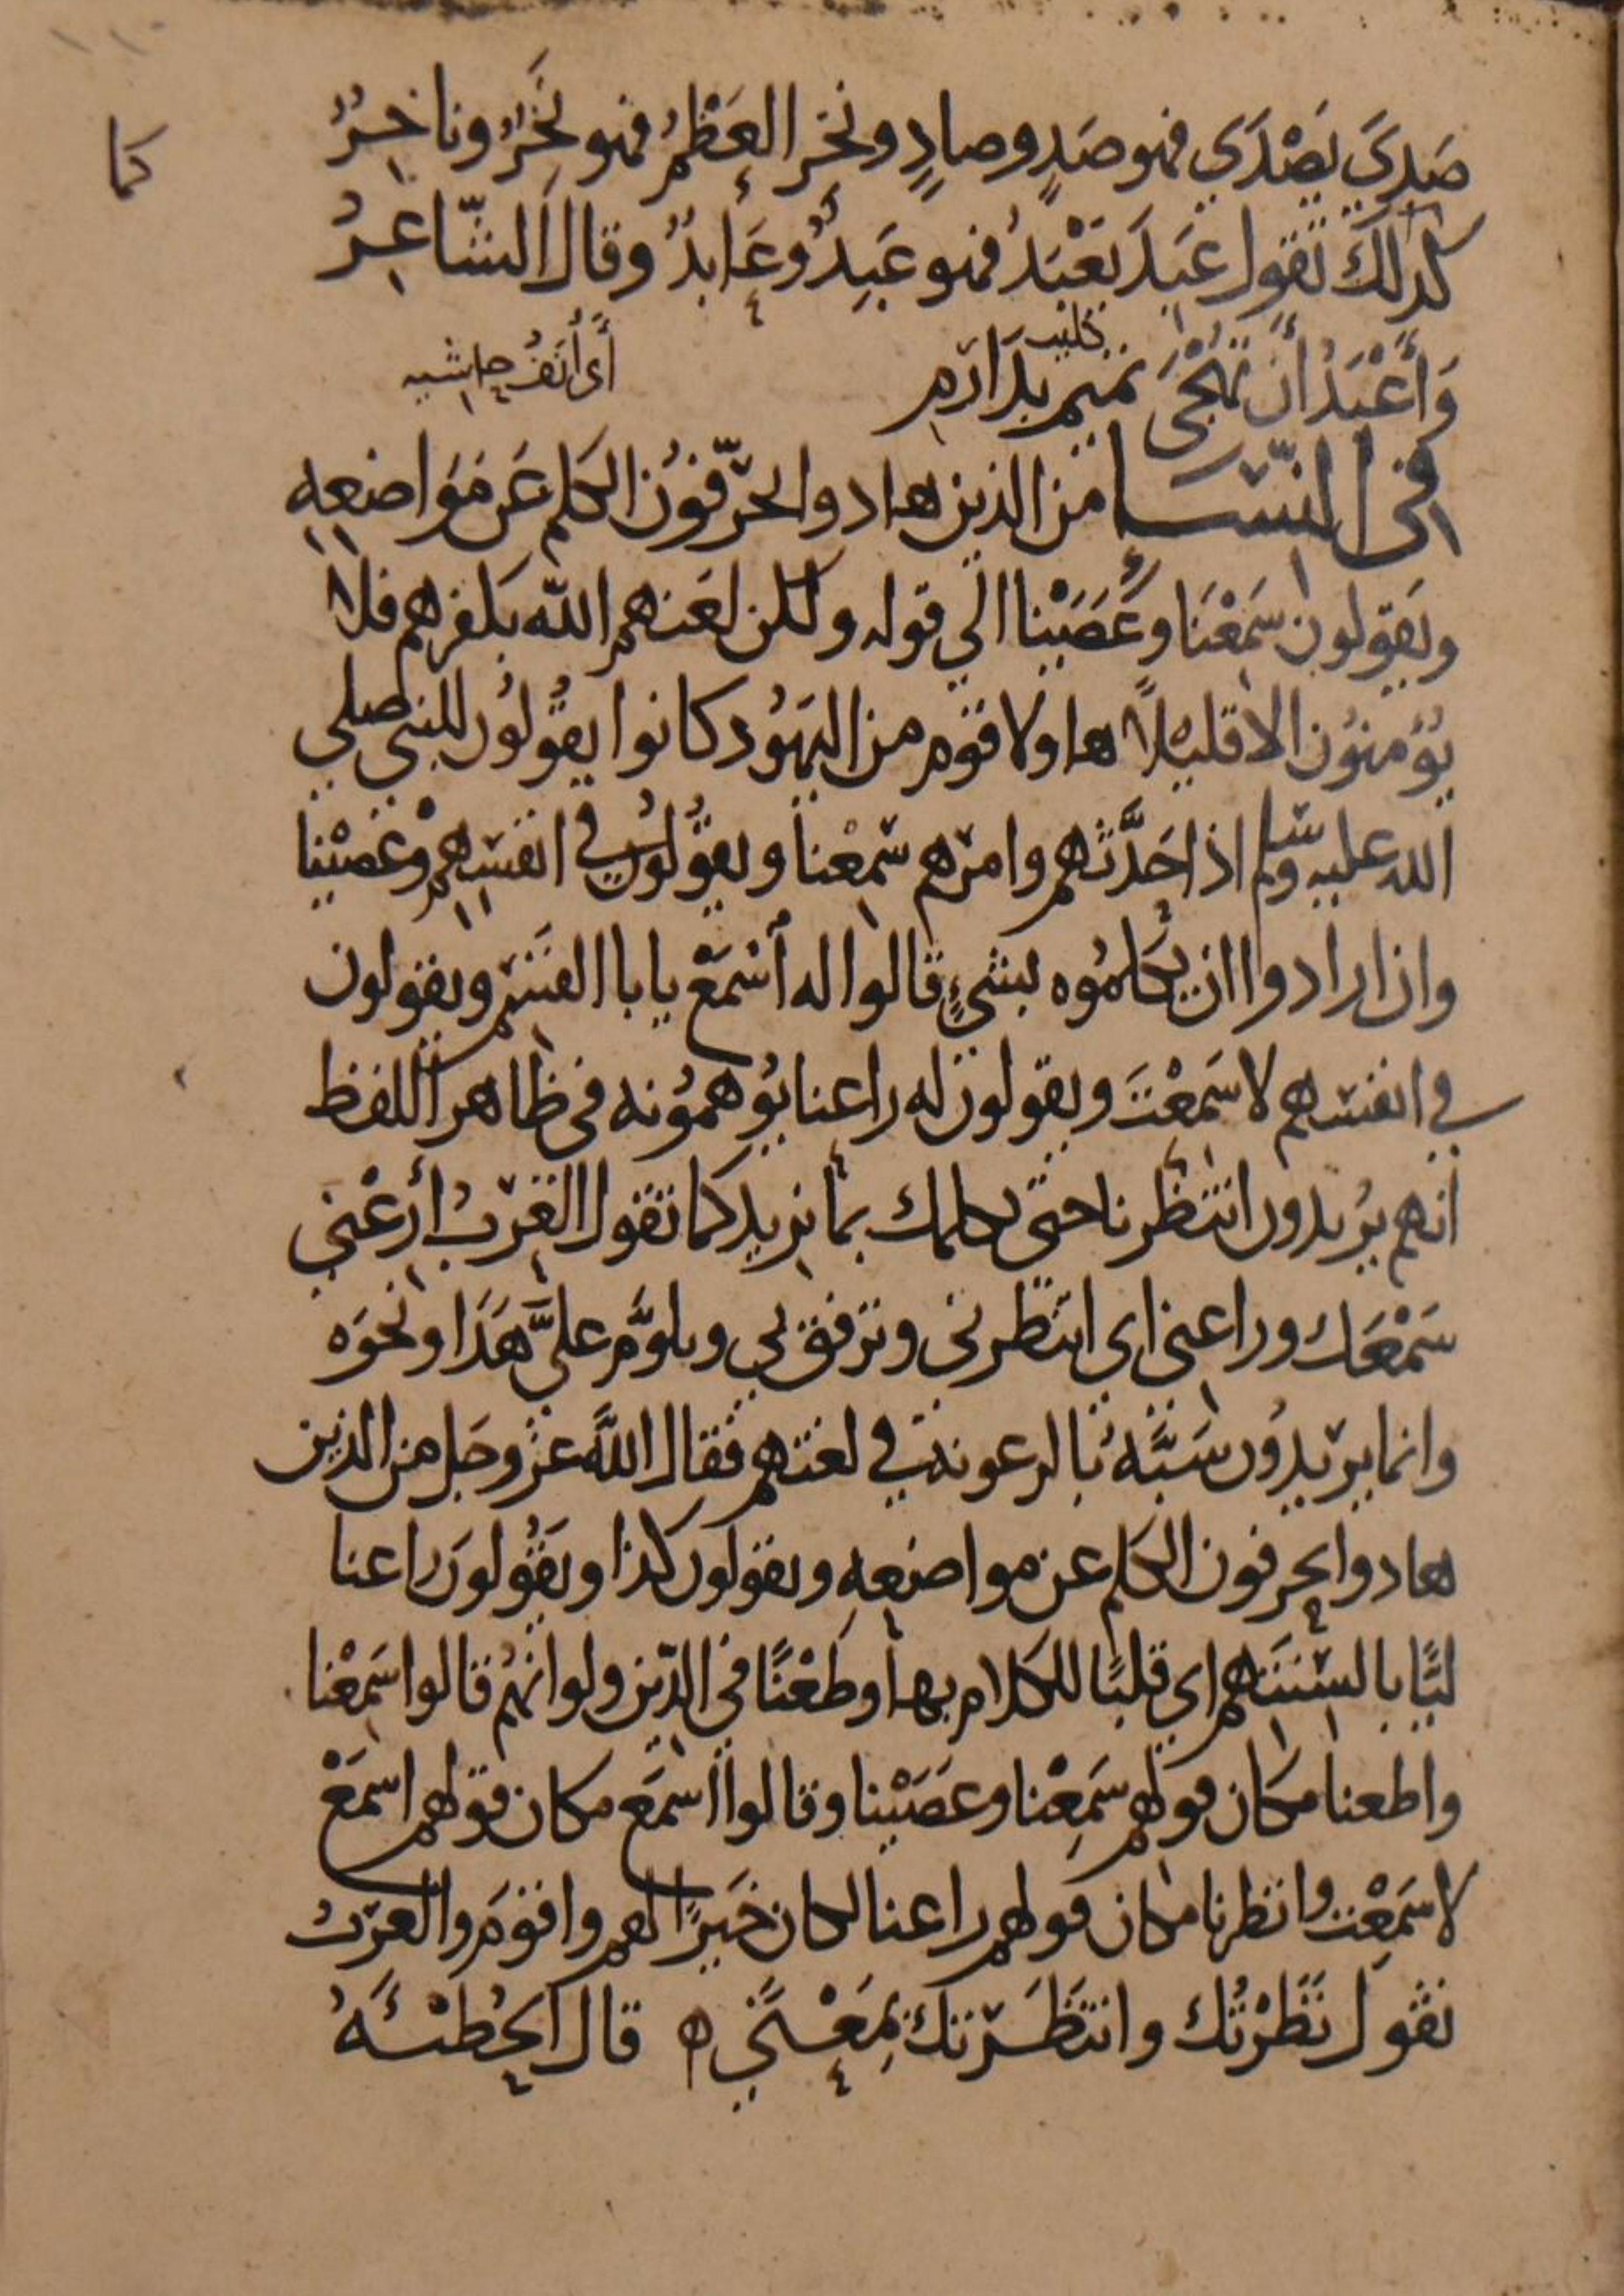 كما
صَدِيَ يَصْدَي فهو صَدٍ وصادٍ ونخر العَظْمُ فهو نَخِرٌ وناخِرٌ
كذلك تقول عَبِدَ يَعْبَدُ فهو عَبِدٌ وعَابدٌ وقال الشّاعِرُ
كليب
وَأَعْبَدُ أَن تُهْجَى تميم بدَارم
أى أنَفُ حاشيه
في النّسا من الذين هادوا يحرّفون الكلم عَن مَوَاضعه
ويقولون سَمِعْنَا وعَصَيْنا الي قوله ولكن لعَنهم الله بكفرهم فلا
يُؤمنُون الا قليْلاً هاولا قوم من اليَهُود كانوا يقُولُون للنبي صلي
الله عليه وسلم اذا حَدَّثهم وامرهم سمعْنا ويقُولُون في انفسهم وعَصيْنا
واذا ارادوا ان يكلمُوه بشيءٍ قالوا له أسْمَعْ يابا القسَم ويقولون
في انفسهم لا سَمعْتَ ويقولون له راعنا يُوهمُونه في ظاهر اللفظ
انهم يُريدون انتظرنا حتى نكلمك بما نريد كما تقول العَرَبُ أرْعني
سَمْعَك وراعني اي انتظرني وترفق بي وتلوَّم عليَّ هَذَا ونحوَه
وانما يريدُون سَبَّهُ بالرعونة في لغتهم فقال اللَّه عز وجل من الذين
هادوا يحرفون الكلم عن مواضعه ويقولون كذا ويَقُولونَ راعنا
ليًّا بالسنتهم اي قلبًا للكلام بها وطَعْنًا في الدّين ولو انهُم قالوا سَمعْنا
واطعنا مكان قولهم سَمِعْنا وعَصَيْنا وقالوا اسمَع مكان قولهم اسمَعْ
لا سَمعْت وانظرنا مكان قولهم راعنا لكان خَيرًا لهم واقوَم والعرَبُ
تقول نَظَرْتُك وانتَظَرتك بمَعْنًي ه قال الحُطَيْئَةُ